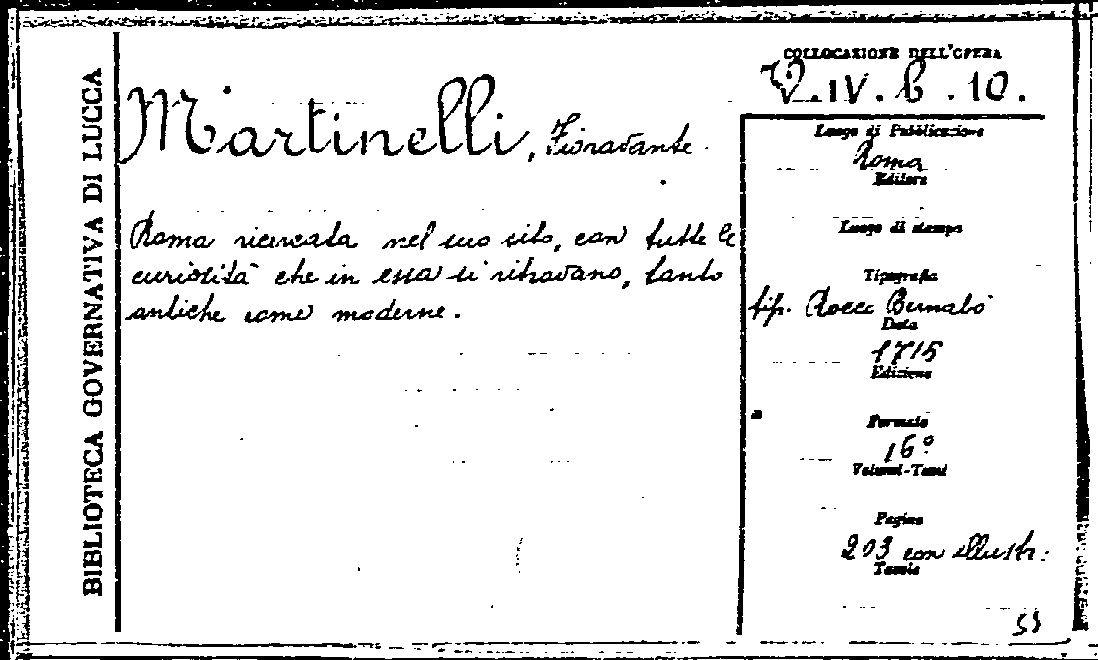 BIBLIOTECA GOVERNATIVA DI LUCCA
Martinelli, Fioravante.
Roma ricercata nel suo sito, con tutte le
curiosità che in essa si ritrovano, tanto
antiche come moderne.
COLLOCAZIONE DELL'OPERA
V.IV.b.10.
Luogo di Pubblicazione
Roma
Editore
Luogo di stampa
Tipografia
tip. Rocco Bernabò
Data
1715
Edizione
Formato
16°
Volumi-Tomi
Pagine
203 con illustr.
Tavole